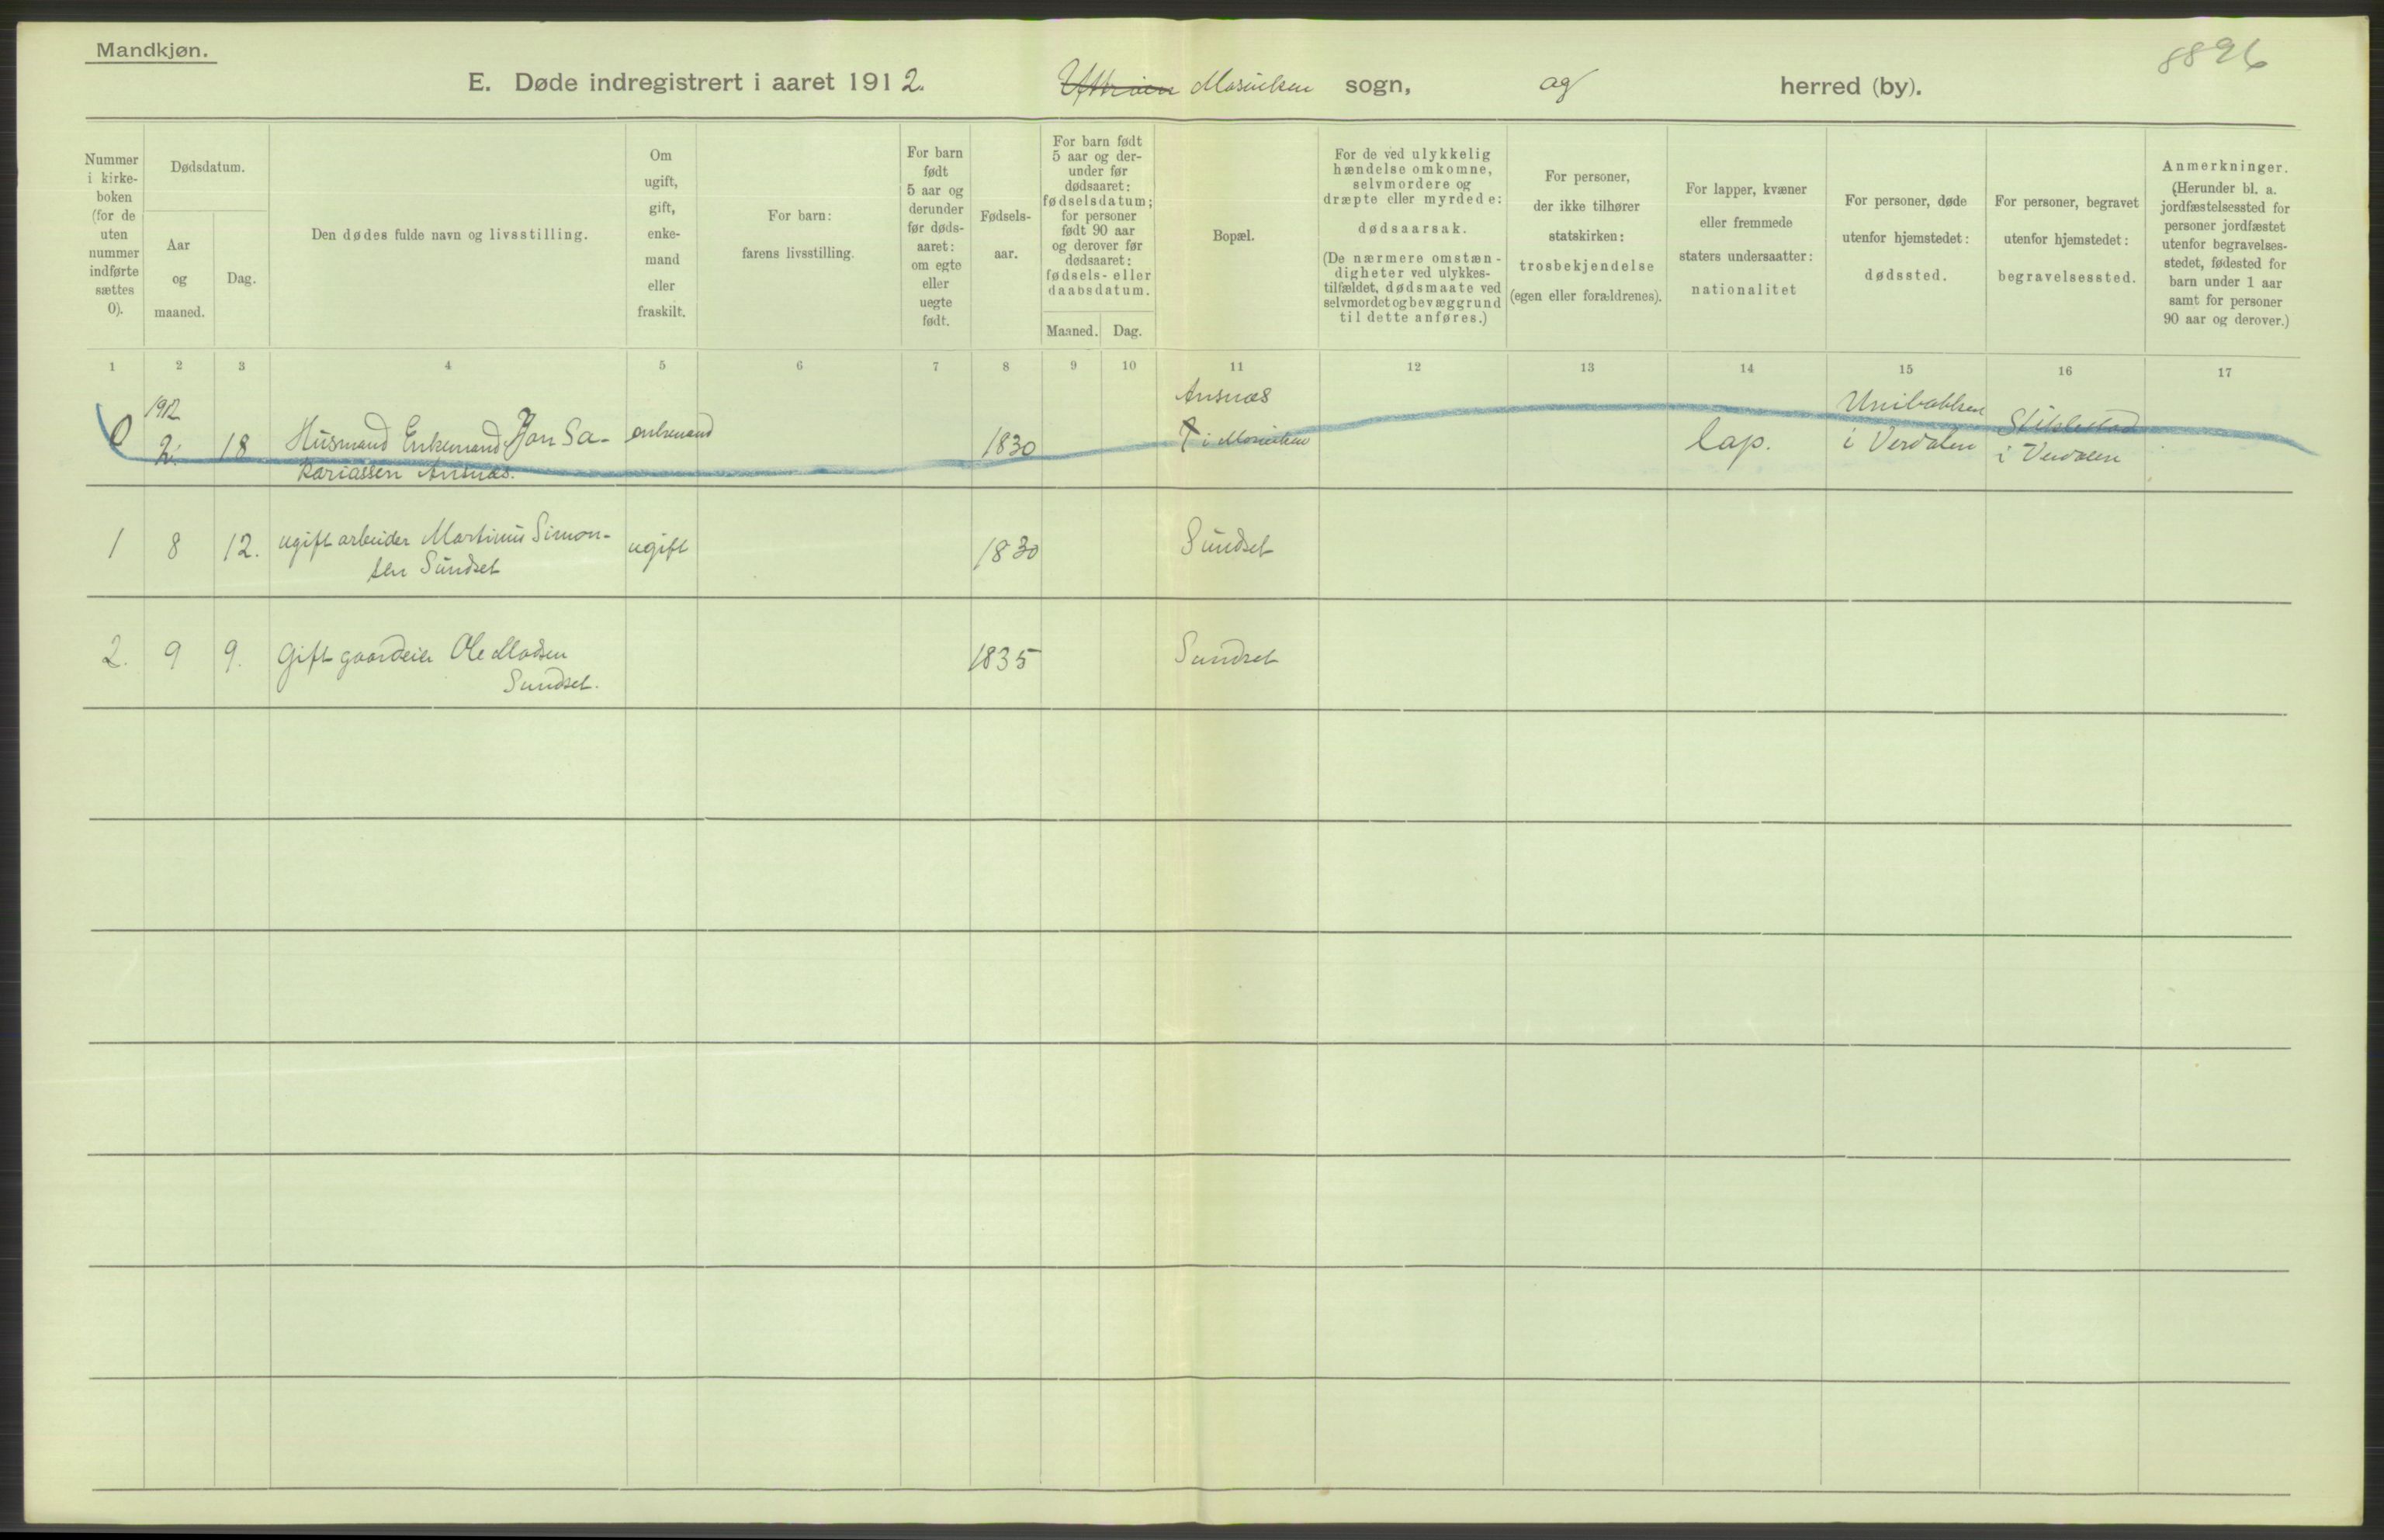 Mandkjøn.
8896
E. Døde indregistrert i aaret 1912. Mosviken sogn, og herred (by).
Nummer i kirke- boken (for de uten nummer indførte sættes 0).
Dødsdatum.
Aar og maaned.
Dag.
Den dødes fulde navn og livsstilling.
Om ugift, gift, enke- mand eller fraskilt.
For barn: farens livsstilling.
For barn født 5 aar og derunder før døds- aaret: om egte eller uegte født.
Fødsels- aar.
For barn født 5 aar og der- under før dødsaaret: fødselsdatum; for personer født 90 aar og derover før dødsaaret: fødsels- eller daabsdatum.
Maaned. Dag.
Bopæl.
For de ved ulykkelig hændelse omkomne, selvmordere og dræpte eller myrdede: dødsaarsak. (De nærmere omstæn- digheter ved ulykkes- tilfældet, dødsmaate ved selvmordet og bevæggrund til dette anføres.)
For personer, der ikke tilhører statskirken: trosbekjendelse (egen eller forældrenes).
For lapper, kvæner eller fremmede staters undersaatter: nationalitet
For personer, døde utenfor hjemstedet: dødssted.
For personer, begravet utenfor hjemstedet: begravelsessted.
Anmerkninger. (Herunder bl. a. jordfæstelsessted for personer jordfæstet utenfor begravelses- stedet, fødested for barn under 1 aar samt for personer 90 aar og derover.)
1 2 3 4 5 6 7 8 9 10 11 12 13 14 15 16 17
1912 Ausnæs
0 2. 18 Husmand Enkemand Jon Sa- enkemand 1830 i Mosviken lap. i Verdalen Stiklestad
kariassen Ausnæs. i Verdalen
1 8 12. ugift arbeider Martinus Simon- ugift 1830 Sundset
sen Sundset
2. 9 9. Gift gaardeier Ole Madsen 1835 Sundset
Sundset.